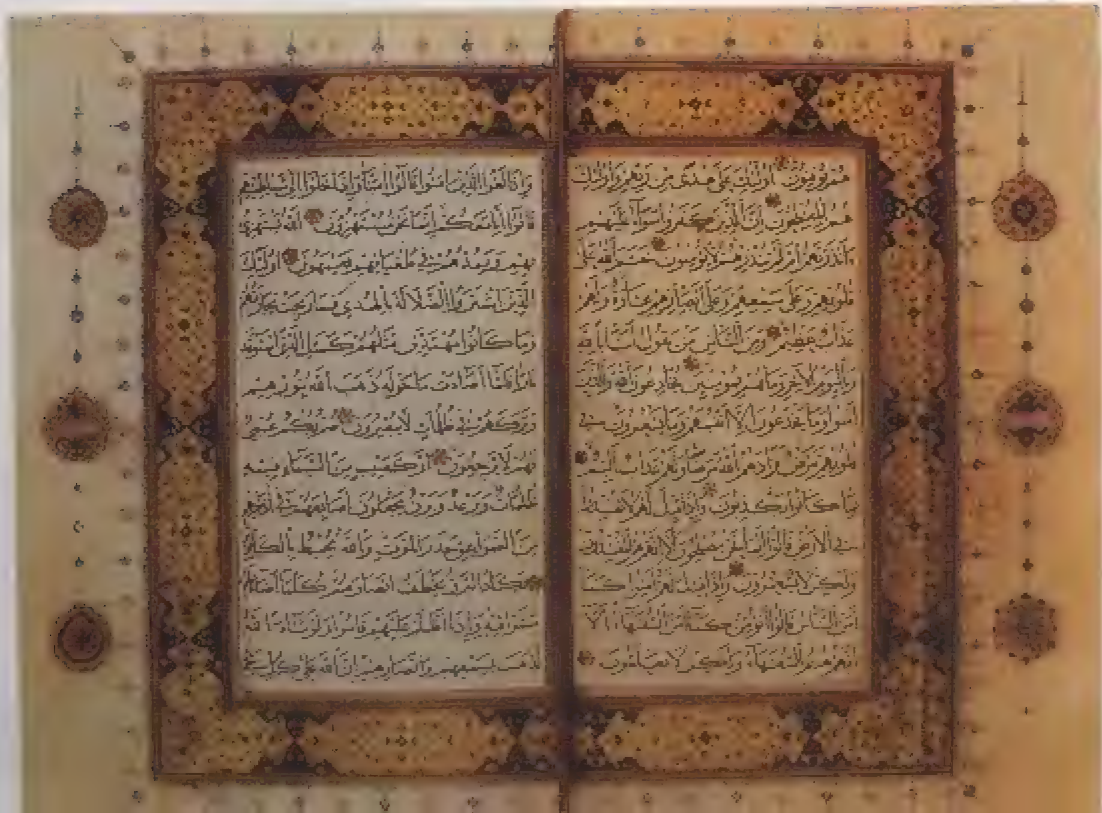 هم يوقنون أولئك على هدى من ربهم وأولئك
هم المفلحون إن الذين كفروا سواء عليهم
ءأنذرتهم أم لم تنذرهم لا يؤمنون ختم الله على
قلوبهم وعلى سمعهم وعلى أبصارهم غشاوة ولهم
عذاب عظيم ومن الناس من يقول آمنا بالله
وباليوم الآخر وما هم بمؤمنين يخادعون الله والذين
آمنوا وما يخدعون إلا أنفسهم وما يشعرون في
قلوبهم مرض فزادهم الله مرضا ولهم عذاب أليم
بما كانوا يكذبون وإذا قيل لهم لا تفسدوا
في الأرض قالوا إنما نحن مصلحون ألا إنهم هم المفسدون
ولكن لا يشعرون وإذا قيل لهم آمنوا كما
آمن الناس قالوا أنؤمن كما آمن السفهاء ألا
إنهم هم السفهاء ولكن لا يعلمون
وإذا لقوا الذين آمنوا قالوا آمنا وإذا خلوا إلى شياطينهم
قالوا إنا معكم إنما نحن مستهزؤن الله يستهزئ
بهم ويمدهم في طغيانهم يعمهون أولئك
الذين اشتروا الضلالة بالهدى فما ربحت تجارتهم
وما كانوا مهتدين مثلهم كمثل الذي استوقد
نارا فلما أضاءت ما حوله ذهب الله بنورهم
وتركهم في ظلمات لا يبصرون صم بكم عمي
فهم لا يرجعون أو كصيب من السماء فيه
ظلمات ورعد وبرق يجعلون أصابعهم في آذانهم
من الصواعق حذر الموت والله محيط بالكافرين
يكاد البرق يخطف أبصارهم كلما أضاء لهم
مشوا فيه وإذا أظلم عليهم قاموا ولو شاء الله
لذهب بسمعهم وأبصارهم إن الله على كل شيء